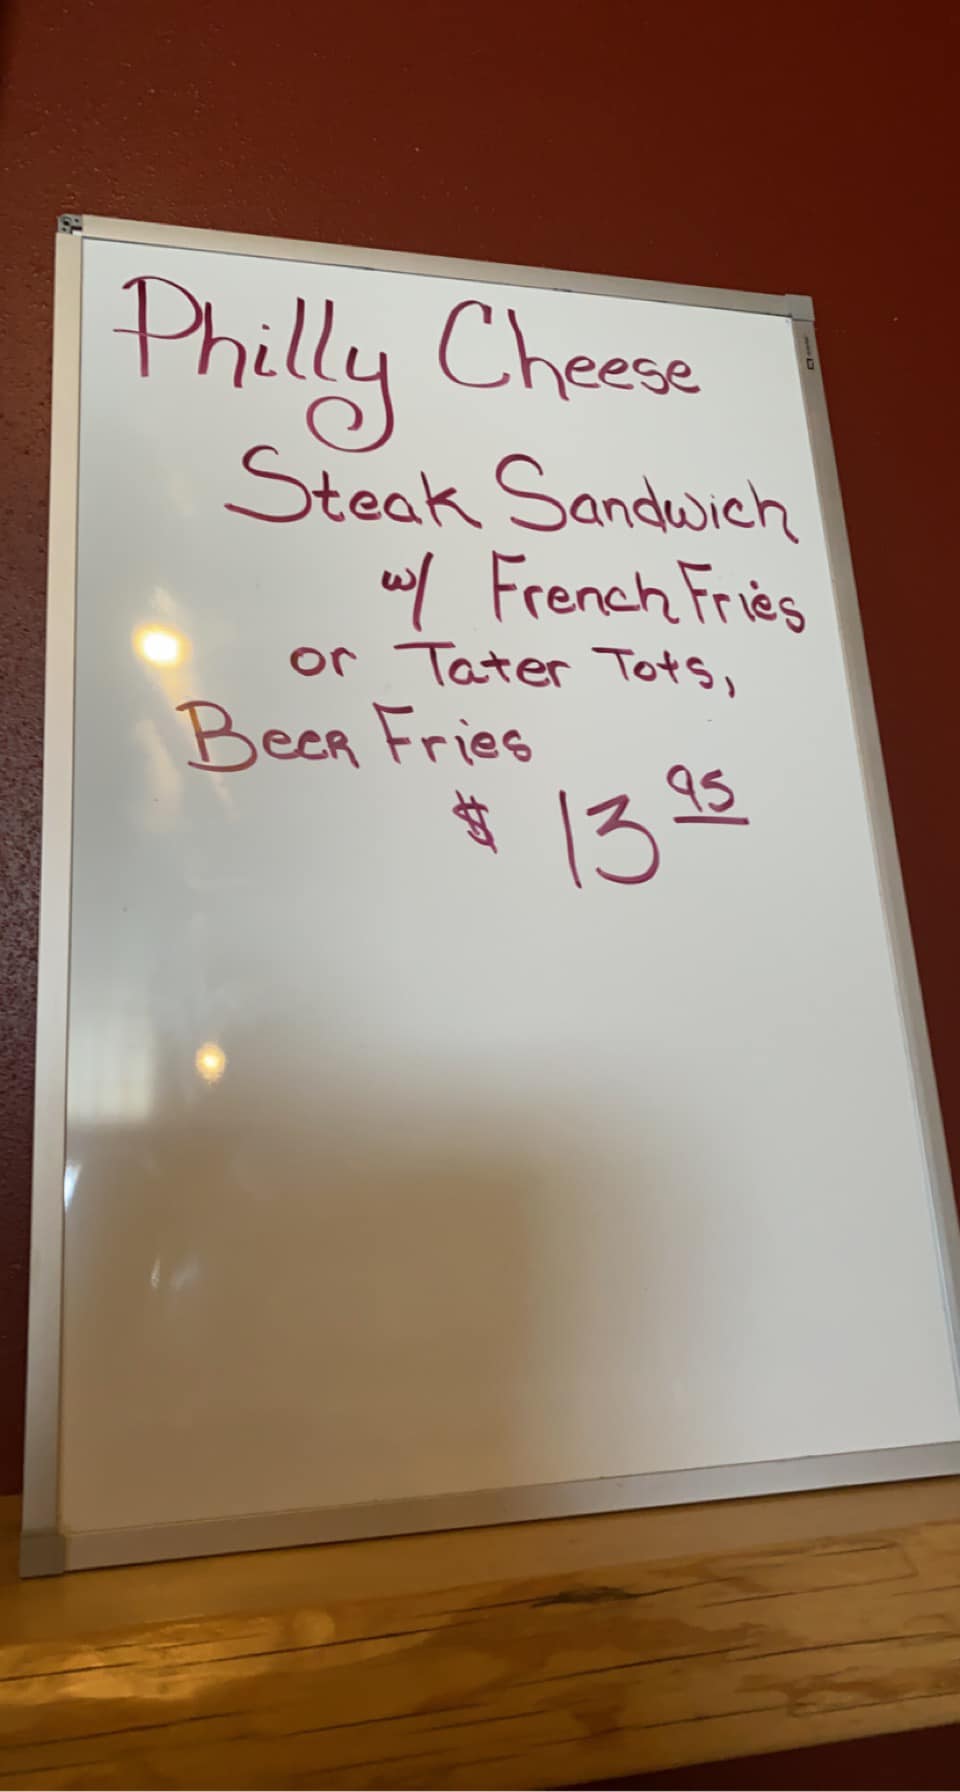 Philly Cheese
Steak Sandwich
w/ French Fries
or Tater Tots,
Beer Fries
$ 13 95